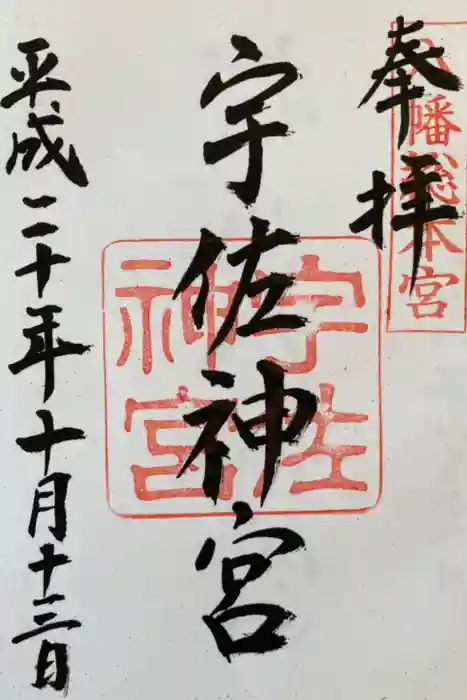 奉拝
八幡総本宮
宇佐神宮
宇佐
神宮
平成二十年十月十三日